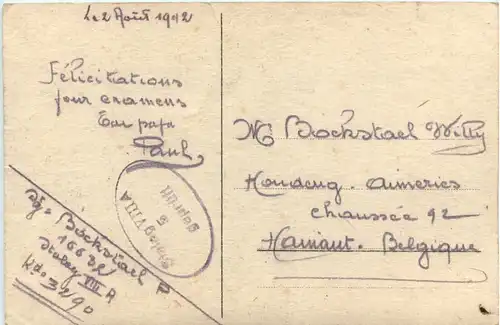 Le 2 Août 1942
Félicitations
pour examens
Ton papa
Paul
Stalag VIII A
5
geprüft
Bockstael P
Stalag VIII A
Kdo 3290
M Bockstael Willy
Houdeng-Aimeries
chaussée 92
Hainaut-Belgique